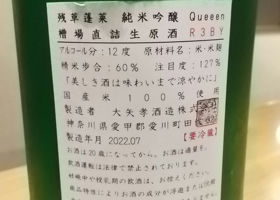 残草蓬莱 純米吟醸 Queeen
槽場直詰生原酒 R3BY
アルコール分:12度 原材料名:米・米麹
精米歩合:60% 注目度:127%
「美しき酒は味わいまで涼やかに」
国産米100%使用
製造者 大矢孝酒造株式会社
神奈川県愛甲郡愛川町田代
製造年月 2022.07 【要冷蔵】
お酒は20歳になってから。お酒は適量を。
飲酒運転は法律で禁止されております。
妊娠中や授乳期の飲酒は、お控えください。
商品特性によりお酒の成分が浮遊または